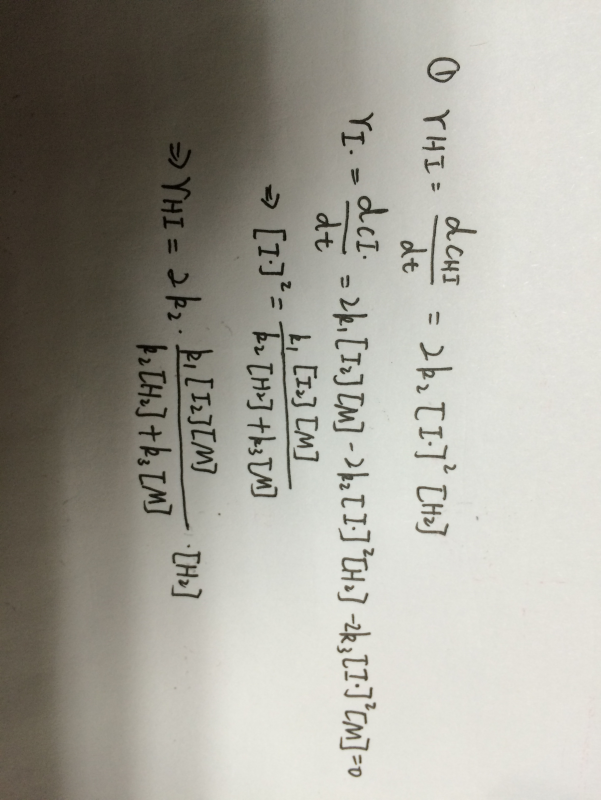 ① r_HI = dC_HI/dt = 2k₂[I·]²[H₂]
r_I· = dC_I·/dt = 2k₁[I₂][M] - 2k₂[I·]²[H₂] - 2k₃[I·]²[M] = 0
⇒ [I·]² = k₁[I₂][M] / k₂[H₂]+k₃[M]
⇒ r_HI = 2k₂ · k₁[I₂][M] / k₂[H₂]+k₃[M] · [H₂]